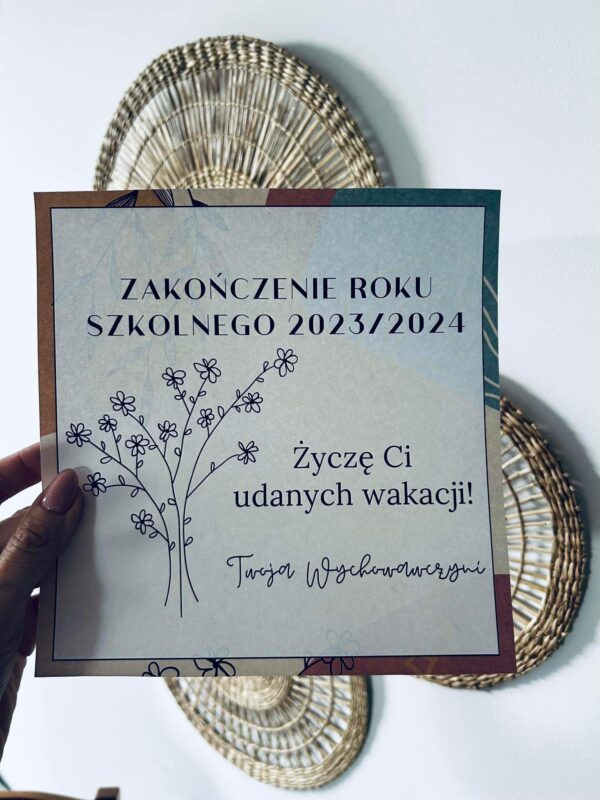 ZAKOŃCZENIE ROKU
SZKOLNEGO 2023/2024
Życzę Ci
udanych wakacji!
Twoja Wychowawczyni